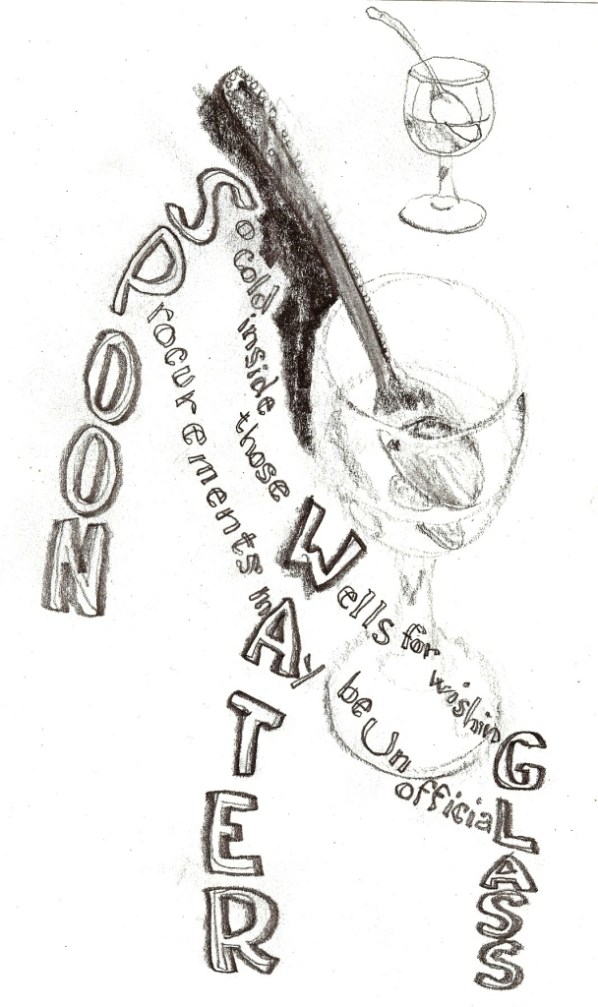 SPOON
So cold inside those Wells for wishinG
Procurements mAy be Un officiaL
WATER
GLASS